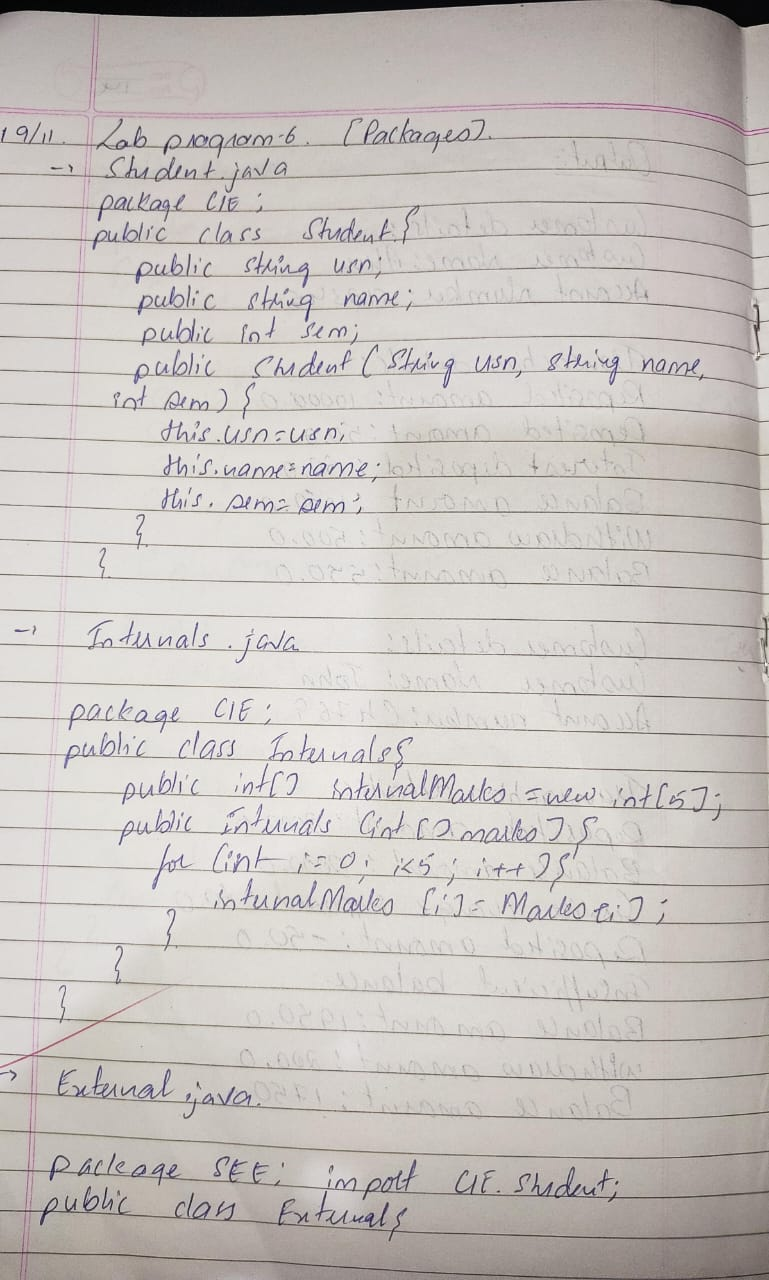 19/11. Lab program-6. [Packages].
→ Student.java
package CIE;
public class Student{
public string usn;
public string name;
public int sem;
public Student (String usn, string name,
int sem) {
this.usn=usn;
this.name=name;
this.sem=sem;
}
}
→ Internals.java
package CIE;
public class Internals{
public int[] internalMarks = new int[5];
public Internals (int[] marks){
for (int i=0; i<5; i++){
internalMarks [i]= Marks[i];
}
}
}
→ External.java.
package SEE; import CIE.Student;
public class External{